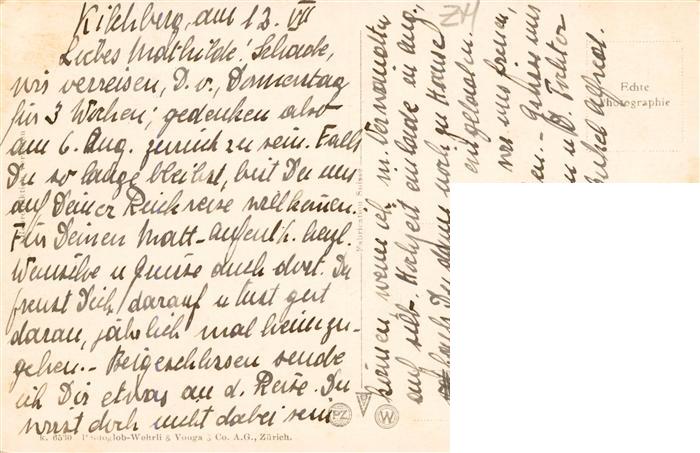 Kilchberg, am 12. VII
Liebes Mathilde! Schade,
wir verreisen, D. v., Donnerstag
für 3 Wochen; gedenken also
am 6. Aug. zurück zu sein. Falls
Du so lange bleibst, bist Du uns
auf Deiner Reise willkomen.
Für Deinen Matt-Aufenth. herzl.
Wünsche u Grüsse auch dort. Du
freust Dich darauf u tust gut
daran, jährlich mal heimzu-
gehen.- Beigeschlossen sende
ich Dir etwas an d. Reise. Du
wirst doch nicht dabei sein
können, wenn ich in. Verwandten
auf silb. Hochzeit einlade im Aug.,
auch Du schon noch zu Hause
eingeladen.
uns freuen,
en.- Grüsse uns
u D. Tochter
Alfred.
ZH
Echte
Photographie
Fabrication Suisse
PZ
W
K. 6530 Photoglob-Wehrli & Vouga & Co. A.G., Zürich.